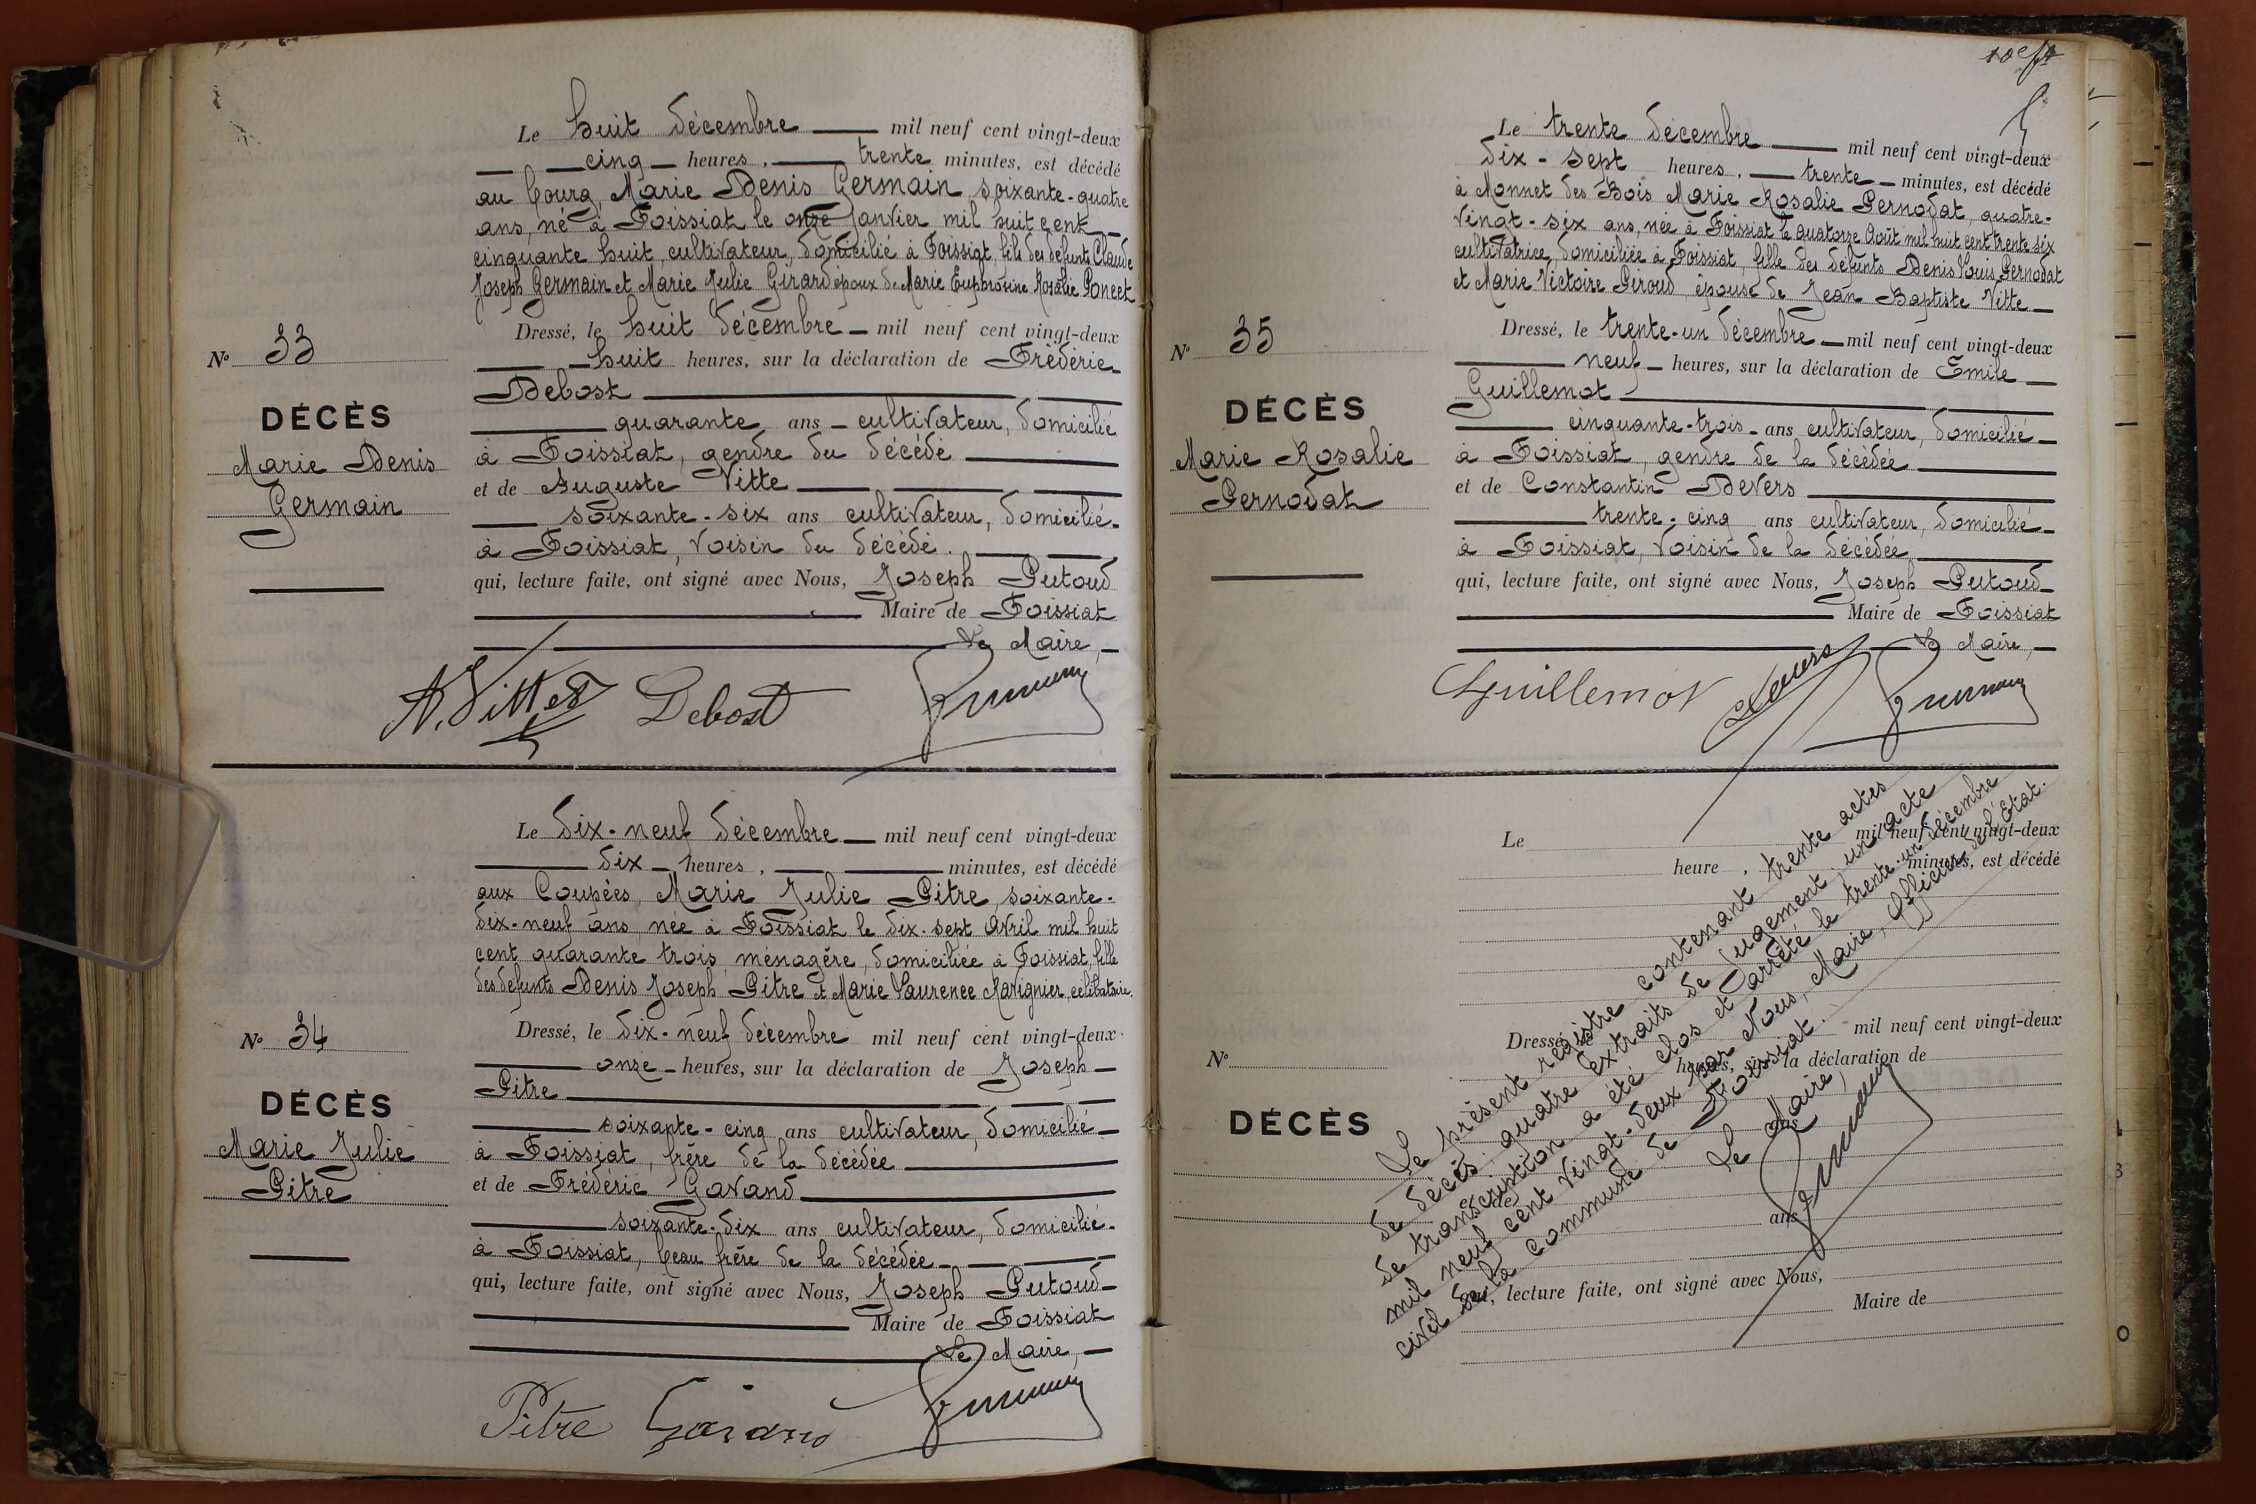 Le huit décembre mil neuf cent vingt-deux
cinq heures, trente minutes, est décédé
au bourg, Marie Denis Germain, soixante-quatre
ans, né à Foissiat le onze Janvier mil huit cent
cinquante huit, cultivateur, domicilié à Foissiat, fils des defunts Claude
Joseph Germain et Marie Julie Girard époux de Marie Euphrosine Rosalie Poncet
N° 33
DÉCÈS
Marie Denis
Germain
Dressé, le huit décembre mil neuf cent vingt-deux
huit heures, sur la déclaration de Frédéric
Debost
quarante ans cultivateur, domicilié
à Foissiat, gendre du décédé
et de Auguste Vitte
soixante-six ans cultivateur, domicilié
à Foissiat, voisin du décédé.
qui, lecture faite, ont signé avec Nous, Joseph Putoud
Maire de Foissiat
Le Maire,
A. Vitte Debost
Le dix-neuf décembre mil neuf cent vingt-deux
dix heures, minutes, est décédé
aux Coupées, Marie Julie Pitre, soixante-
dix-neuf ans, née à Foissiat le dix-sept Avril mil huit
cent quarante trois, ménagère, domiciliée à Foissiat, fille
des defunts Denis Joseph Pitre et Marie Laurence Marignier, célibataire.
N° 34
DÉCÈS
Marie Julie
Pitre
Dressé, le dix-neuf décembre mil neuf cent vingt-deux
onze heures, sur la déclaration de Joseph
Pitre
soixante-cinq ans cultivateur, domicilié
à Foissiat, frère de la décédée
et de Frédéric Gavand
soixante-dix ans cultivateur, domicilié
à Foissiat, beau frère de la décédée
qui, lecture faite, ont signé avec Nous, Joseph Putoud
Maire de Foissiat
Le Maire,
Pitre Gavand
Le trente décembre mil neuf cent vingt-deux
dix-sept heures, trente minutes, est décédé
à Monnet des Bois Marie Rosalie Pernodat, quatre-
vingt-six ans, née à Foissiat le quatorze Août mil huit cent trente six
cultivatrice, domiciliée à Foissiat, fille des défunts Denis Louis Pernodat
et Marie Victoire Piroud, épouse de Jean Baptiste Vitte
N° 35
DÉCÈS
Marie Rosalie
Pernodat
Dressé, le trente-un décembre mil neuf cent vingt-deux
neuf heures, sur la déclaration de Emile
Guillemot
cinquante-trois ans cultivateur, domicilié
à Foissiat, gendre de la décédée
et de Constantin Devers
trente-cinq ans cultivateur, domicilié
à Foissiat, voisin de la décédée
qui, lecture faite, ont signé avec Nous, Joseph Putoud
Maire de Foissiat
Le Maire,
Guillemot Devers
Le mil neuf cent vingt-deux
heure, minutes, est décédé
N°
DÉCÈS
Dressé, le mil neuf cent vingt-deux
heures, sur la déclaration de
ans
et de
ans
qui, lecture faite, ont signé avec Nous,
Maire de
Le présent registre contenant trente actes
de décès, quatre extraits de jugement, un acte
de transcription a été clos et arrêté le trente-un décembre
mil neuf cent vingt-deux par Nous, Maire, Officier de l'Etat
civil de la commune de Foissiat.
Le Maire,